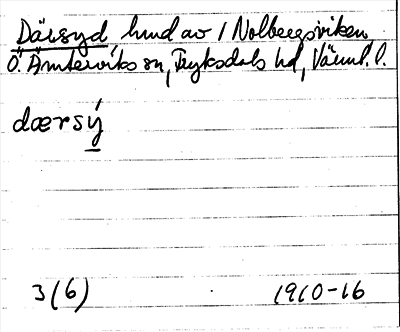 Därsyd hmd av 1 Nolbergsviken
Ö. Ämterviks sn, Fryksdals hd, Värml. l.
dærsý
3(6) 1910-16